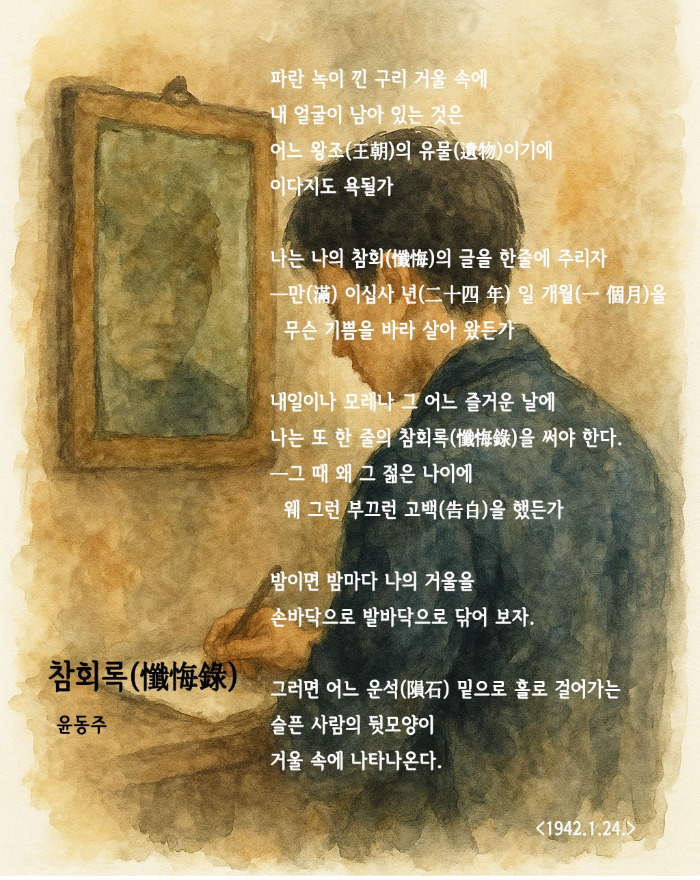 파란 녹이 낀 구리 거울 속에
내 얼굴이 남아 있는 것은
어느 왕조(王朝)의 유물(遺物)이기에
이다지도 욕될가
나는 나의 참회(懺悔)의 글을 한줄에 주리자
─만(滿) 이십사 년(二十四 年) 일 개월(一 個月)을
무슨 기쁨을 바라 살아 왔든가
내일이나 모레나 그 어느 즐거운 날에
나는 또 한 줄의 참회록(懺悔錄)을 써야 한다.
─그 때 왜 그 젊은 나이에
웨 그런 부끄런 고백(告白)을 했든가
밤이면 밤마다 나의 거울을
손바닥으로 발바닥으로 닦어 보자.
그러면 어느 운석(隕石) 밑으로 홀로 걸어가는
슬픈 사람의 뒷모양이
거울 속에 나타나온다.
<1942.1.24.>
참회록(懺悔錄)
윤동주